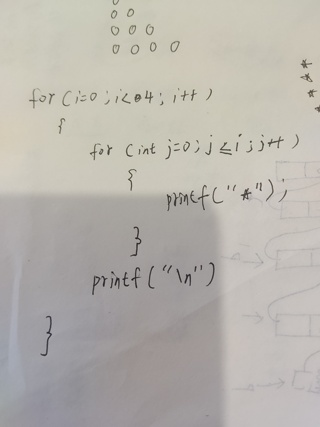 for (i=0; i<4; i++)
{
for (int j=0; j≤i; j++)
{
printf("*");
}
printf("\n")
}